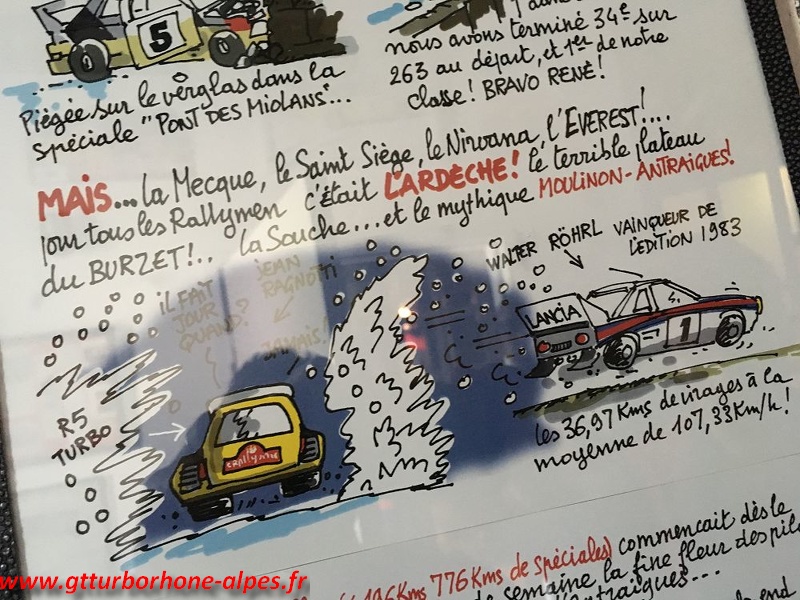 5
Piégée sur le verglas dans la
spéciale "PONT DES MIOLANS"...
nous avons terminé 34e sur
263 au départ, et 1er de notre
classe! BRAVO RENÉ!
MAIS... la Mecque, le Saint Siège, le Nirvana, l'EVEREST!...
pour tous les Rallymen c'était L'ARDÈCHE! le terrible plateau
du BURZET!.. la Souche... et le mythique MOULINON-ANTRAIGUES!
iL FAIT
JOUR
QUAND?
JEAN
RAGNOTTi
JAMAIS!
R5
TURBO
WALTER RÖHRL VAINQUEUR DE
L'EDITION 1983
LANCIA
1
les 36,97 Kms de virages à la
moyenne de 107,33 Km/h!
776 Kms de spéciales) commençait dès le
de semaine la fine fleur des
www.gtturborhone-alpes.fr